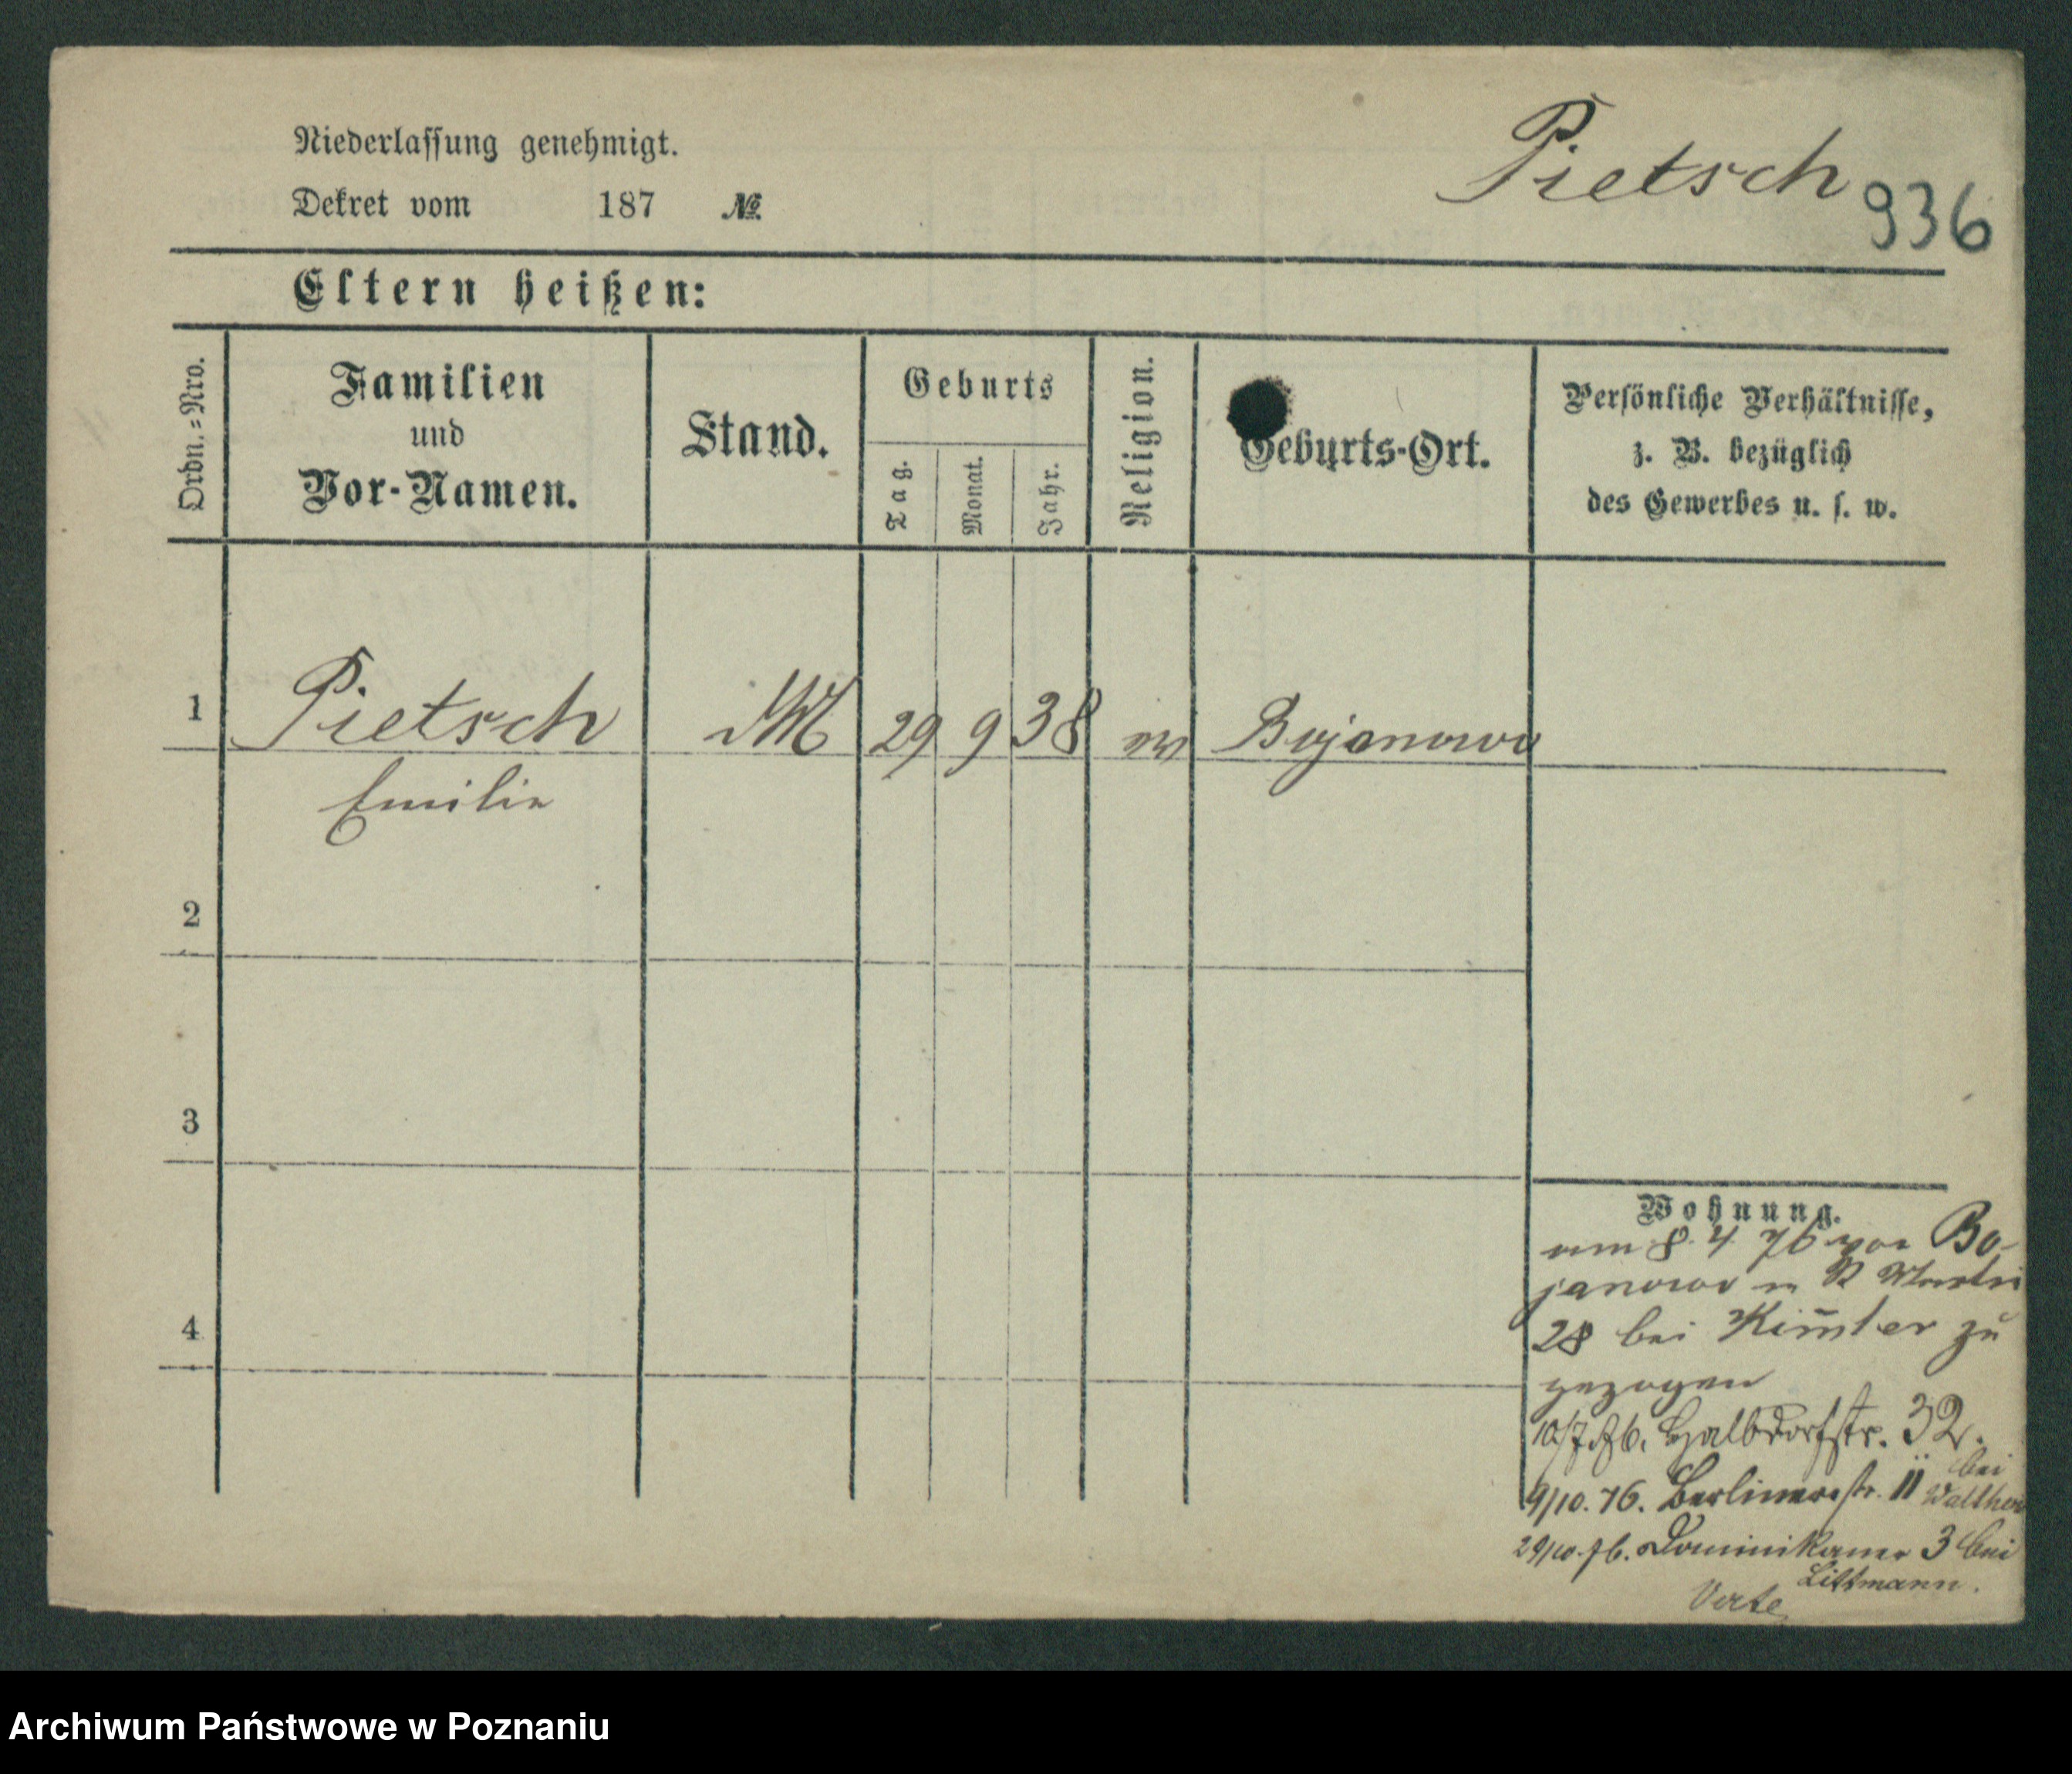 Niederlassung genehmigt.
Dekret vom 187 №
Pietsch
936
Eltern heißen:
Ordn.-Nro.
Familien
und
Vor-Namen.
Stand.
Geburts
Tag.
Monat.
Jahr.
Religion.
Geburts-Ort.
Persönliche Verhältnisse,
z. B. bezüglich
des Gewerbes u. s. w.
1 Pietsch 29 9 38 ev Bojanowo
Emilie
2
3
4
Wohnung.
am 8. 4 76 von Bo-
janowo n St Martin
28 bei zu
gezogen
10/7.76. Halbdorfstr. 32.
9/10. 76. Berlinerstr. 11 bei Walther
29/10.76. Dominikaner 3 bei
Littmann.
Verte